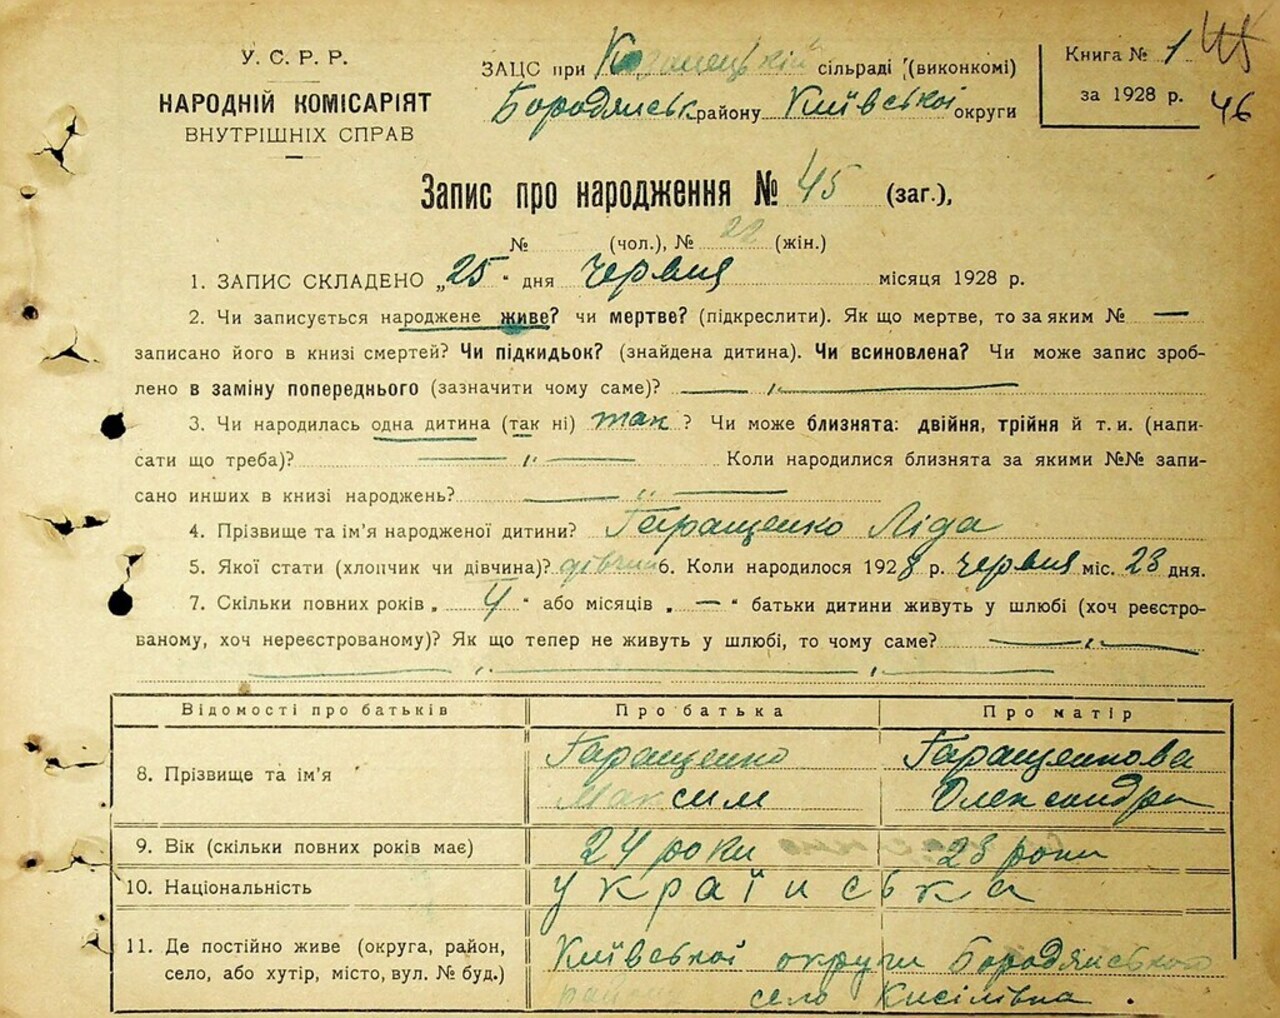 У. С. Р. Р.
НАРОДНІЙ КОМІСАРІЯТ
ВНУТРІШНІХ СПРАВ
ЗАЦС при сільраді (виконкомі)
Бородянськ району Київської округи
Книга № 1 45
за 1928 р. 46
Запис про народження № 45 (заг.),
№ — (чол.), № 22 (жін.)
1. ЗАПИС СКЛАДЕНО „25" дня червня місяця 1928 р.
2. Чи записується народжене живе? чи мертве? (підкреслити). Як що мертве, то за яким № —
записано його в книзі смертей? Чи підкидьок? (знайдена дитина). Чи всиновлена? Чи може запис зроб-
лено в заміну попереднього (зазначити чому саме)? — „ —
3. Чи народилась одна дитина (так ні) так ? Чи може близнята: двійня, трійня й т. и. (напи-
сати що треба)? — „ — Коли народилися близнята за якими №№ запи-
сано инших в книзі народжень? — „ —
4. Прізвище та ім'я народженої дитини? Гаращенко Ліда
5. Якої стати (хлопчик чи дівчина)? дівчин 6. Коли народилося 1928 р. червня міс. 23 дня.
7. Скільки повних років „ 4 " або місяців „ — " батьки дитини живуть у шлюбі (хоч реєстро-
ваному, хоч нереєстрованому)? Як що тепер не живуть у шлюбі, то чому саме? — „ —
— „ — „ —
Відомості про батьків Про батька Про матір
8. Прізвище та ім'я Гаращенко Максим Гаращенкова Олександра
9. Вік (скільки повних років має) 24 роки 23 роки
10. Національність українська
11. Де постійно живе (округа, район,
село, або хутір, місто, вул. № буд.)
Київської округи Бородянського
району село Кисілівка .